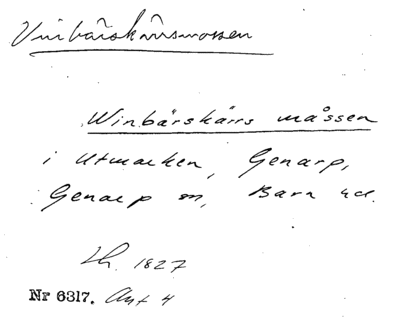 Vinbärskärrsmossen
Winbärskärrs måssen
i Utmarken, Genarp,
Genarp sn, Bara hd.
Lh. 1827
Nr 6317. Akt 4